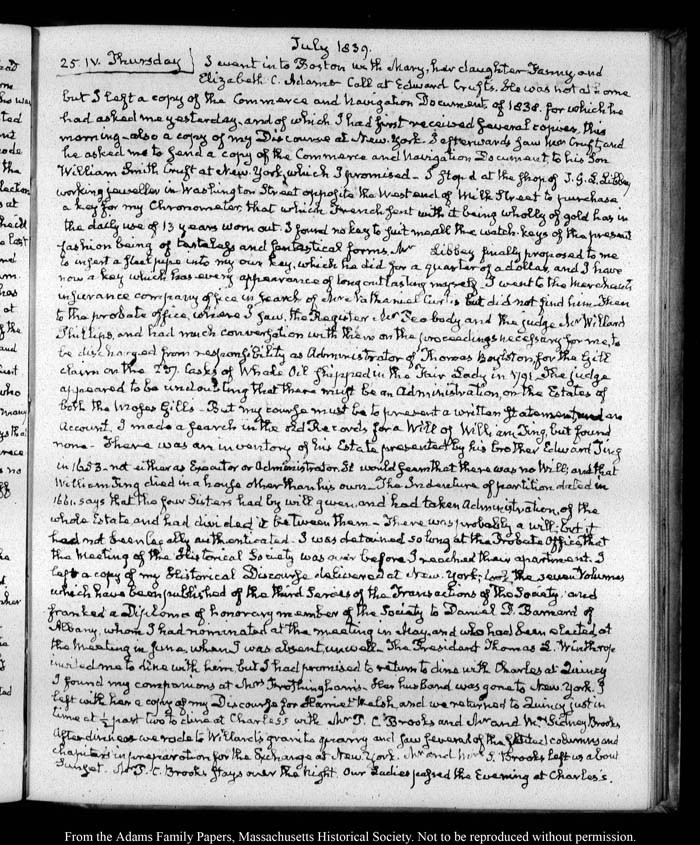 July 1839.
25. IV. Thursday} I went in to Boston with Mary, her daughter Fanny, and
Elizabeth C. Adams Call at Edward Crufts. He was not at home
but I left a copy of the Commerce and Navigation Document of 1838. for which he
had asked me yesterday, and of which I had first received several copies, this
morning—also a copy of my Discourse at New-York. I afterwards saw him Cruft and
he asked me to send a copy of the Commerce and Navigation Document to his Son
William Smith Cruft at New-York, which I promised—I stop'd at the shop of J. G. L. Libbey,
working jeweller in Washington Street opposite the West end of Milk Street to purchase
a key for my Chronometer, that which French sent with it being wholly of gold has in
the daily use of 13 years worn out. I found no key to suit me all the watch-keys of the present
fashion being of tasteless and fantastical forms. Mr Libbey finally proposed to me
to insert a steel pipe into my own key, which he did for a quarter of a dollar, and I have
now a key which has every appearance of long outlasting myself. I went to the Merchants
insurance company office in search of Mr Nathaniel Curtis but did not find him. Then
to the probate office, where I saw, the Register Mr Peabody and the judge Mr Willard
Phillips, and had much conversation with them on the proceedings necessary for me, to
be discharged from responsibility as Administrator of Thomas Boylston, for the Gill
claim on the 237. Casks of Whale Oil shipped in the Fair Lady in 1791. The judge
appeared to be undoubting that there must be an Administration, on the Estates of
both the Moses Gills—But my course must be to present a written statement and an
Account. I made a search in the old Records for a Will of William Ting, but found
none—There was an inventory of his Estate presented by his brother Edward Ting
in 1653—not either as Executor or Administrator. It would seem that there was no Will, and that
William Ting died in a house other than his own—The Indenture of partition dated in
1661. says that the four Sisters had by will given, and had taken Administration, of the
whole Estate and had divided it between them—There was probably a will; but it
had not been legally authenticated. I was detained so long at the Probate Office that
the Meeting of the Historical Society was over before I reached their apartment. I
left a copy of my Historical Discourse delivered at New-York; took the seven Volumes
which have been published of the third Series of the Transactions of the Society; and
franked a Diploma of honorary member of the Society to Daniel D. Barnard of
Albany, whom I had nominated at the meeting in May, and who had been elected, at
the Meeting in June, when I was absent, unwell. The President Thomas L. Winthrop
invited me to dine with him, but I had promised to return to dine with Charles at Quincy
I found my companions at Mrs Frothingham's. Her husband was gone to New York. I
left with her a copy of my Discourse for Harriet Welsh, and we returned to Quincy just in
time at ½ past two to dine at Charles's with Mr P. C. Brooks and Mr and Mrs Sidney Brooks
After dinner we rode to Willard's granite quarry and saw several of the fluted columns and
chapiters in preparation for the Exchange at New York. Mr and Mrs S. Brooks left us about
Sunset. Mr P. C. Brooks stays over the night. Our Ladies passed the Evening at Charles's.
From the Adams Family Papers, Massachusetts Historical Society. Not to be reproduced without permission.